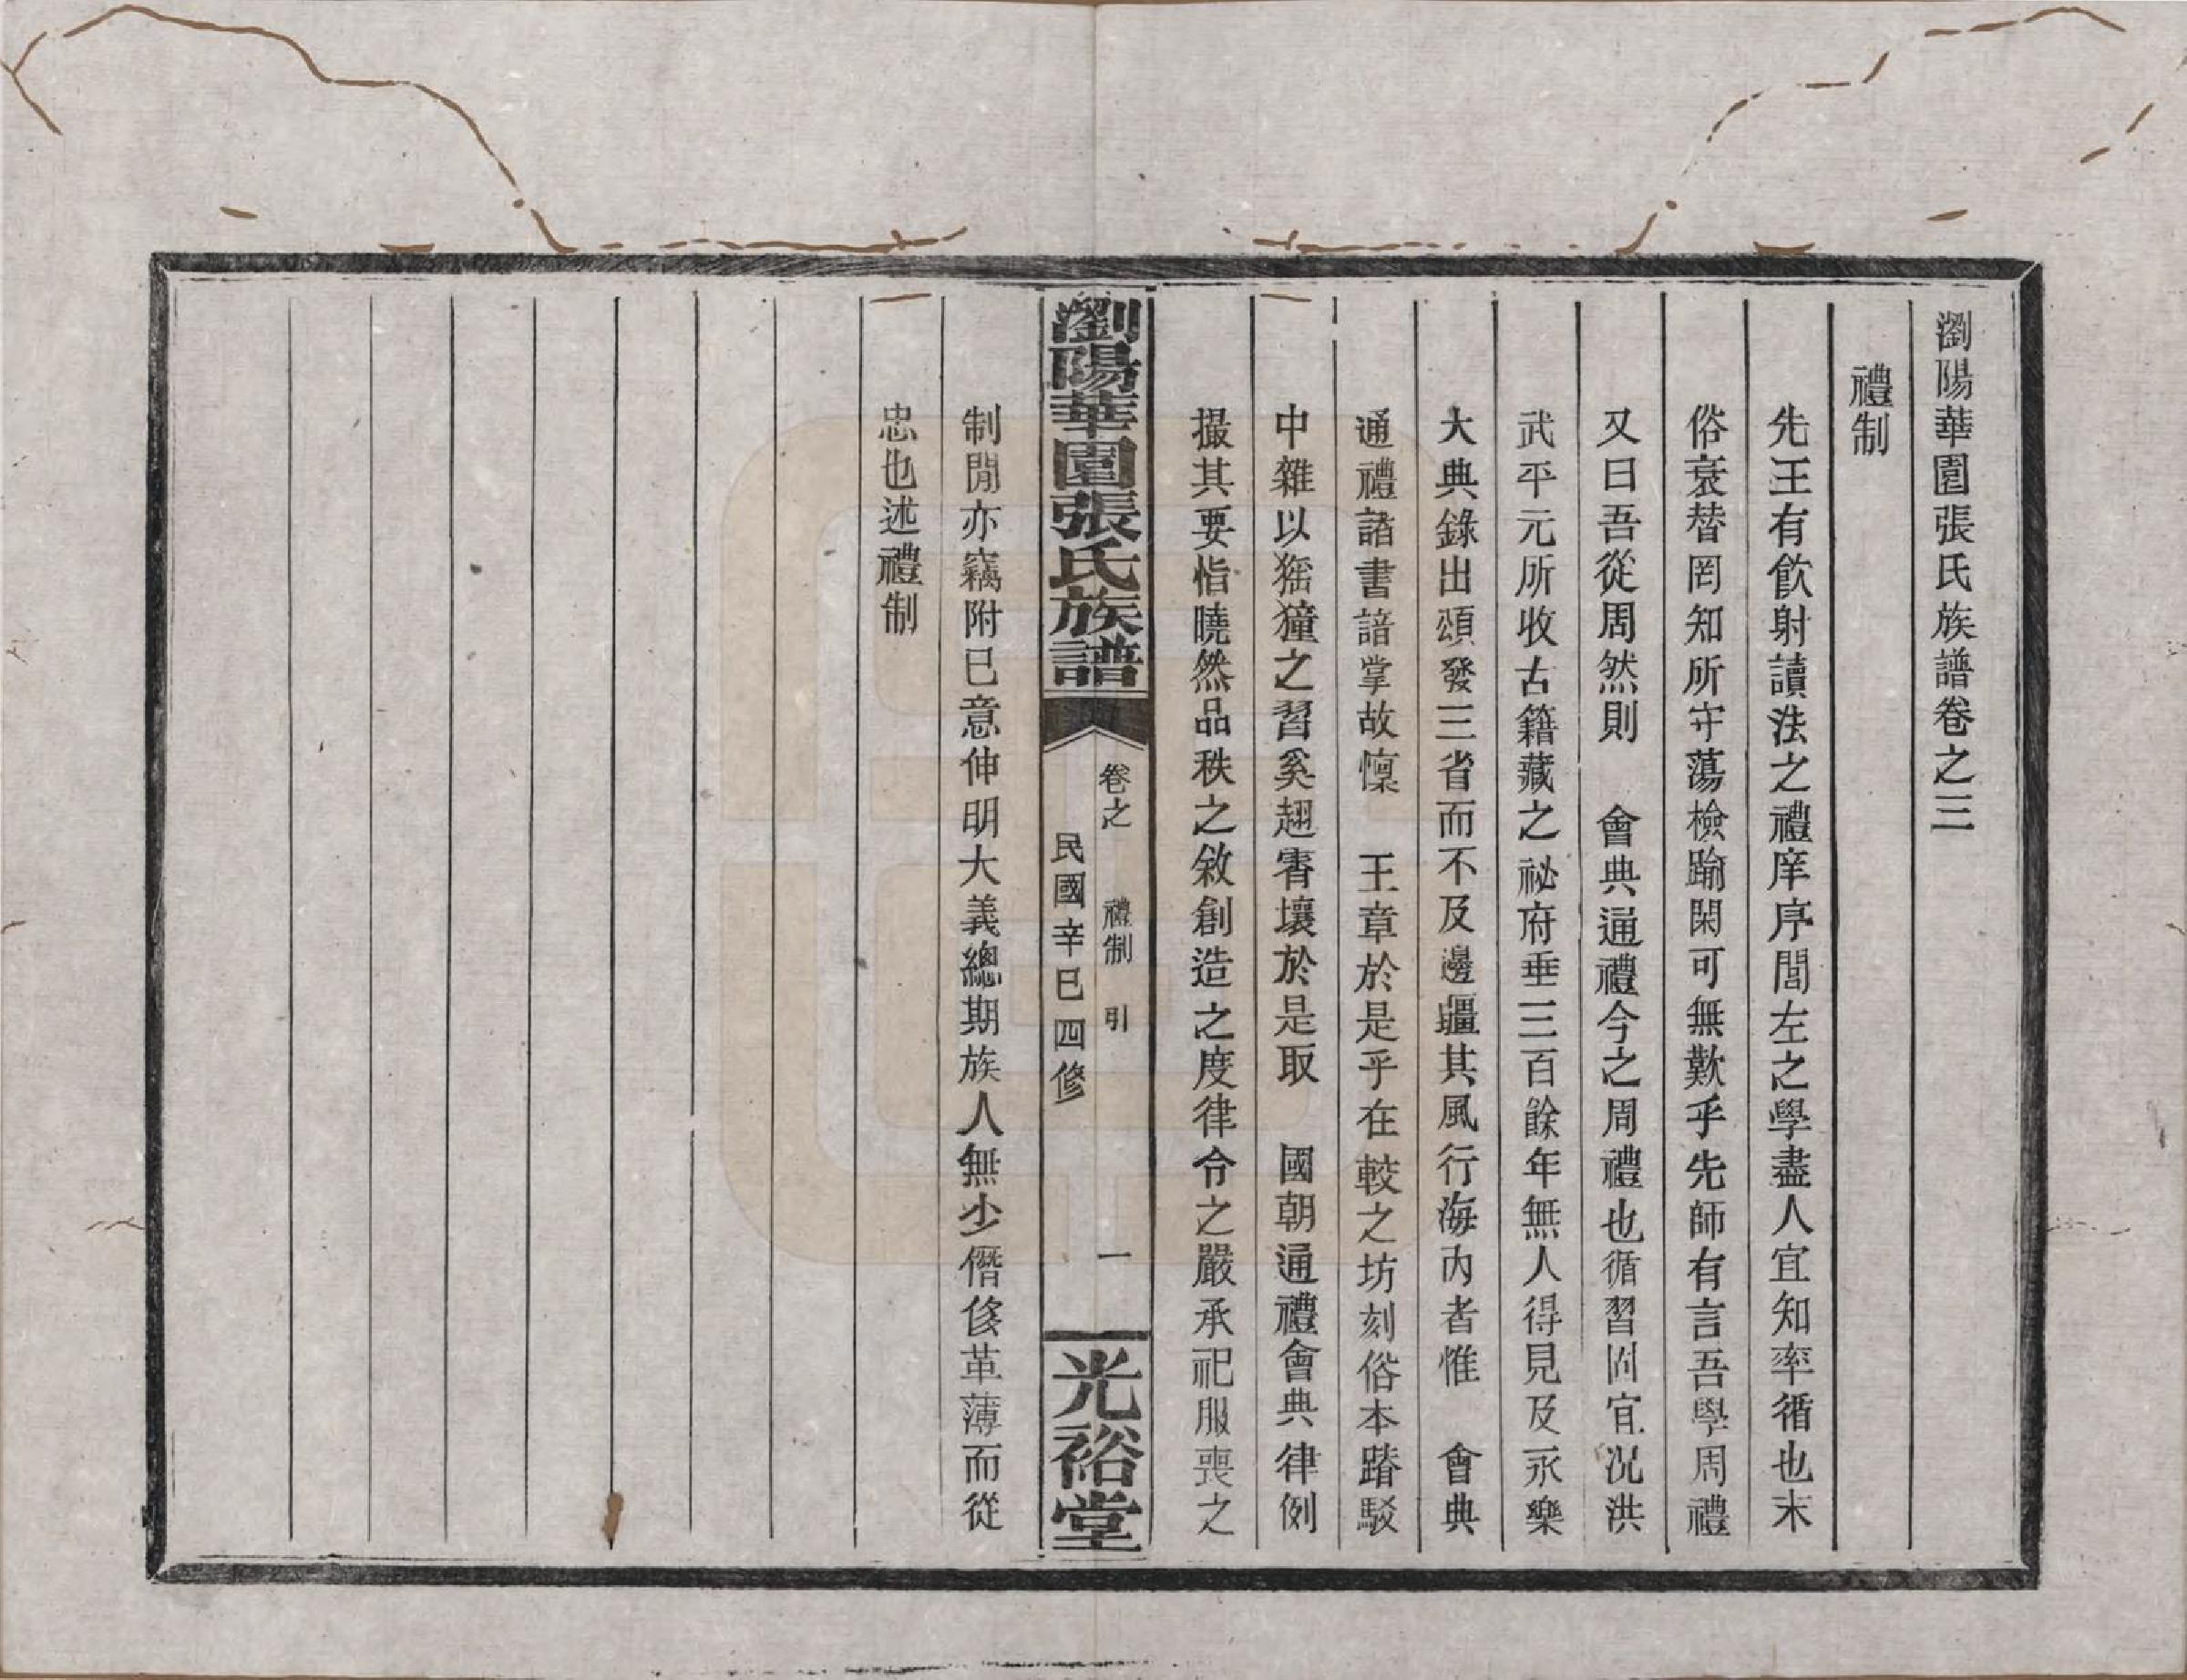 瀏陽華園張氏族譜卷之三
禮制
先王有飮射讀法之禮庠序閭左之學盡人宜知率循也末
俗衰替罔知所守蕩檢踰閑可無歎乎先師有言吾學周禮
又曰吾從周然則　會典通禮今之周禮也循習固宜况洪
武平元所收古籍藏之祕府垂三百餘年無人得見及永樂
大典錄出頒發三省而不及邊疆其風行海內者惟　會典
通禮諸書諳掌故懍　王章於是乎在較之坊刻俗本踳駁
中雜以猺獞之習奚趐霄壤於是取　國朝通禮會典律例
撮其要恉曉然品秩之敘創造之度律令之嚴承祀服喪之
瀏陽華園張氏族譜
卷之　禮制　引　一
民國辛巳四修
光裕堂
制閒亦竊附己意伸明大義總期族人無少僭侈革薄而從
忠也述禮制